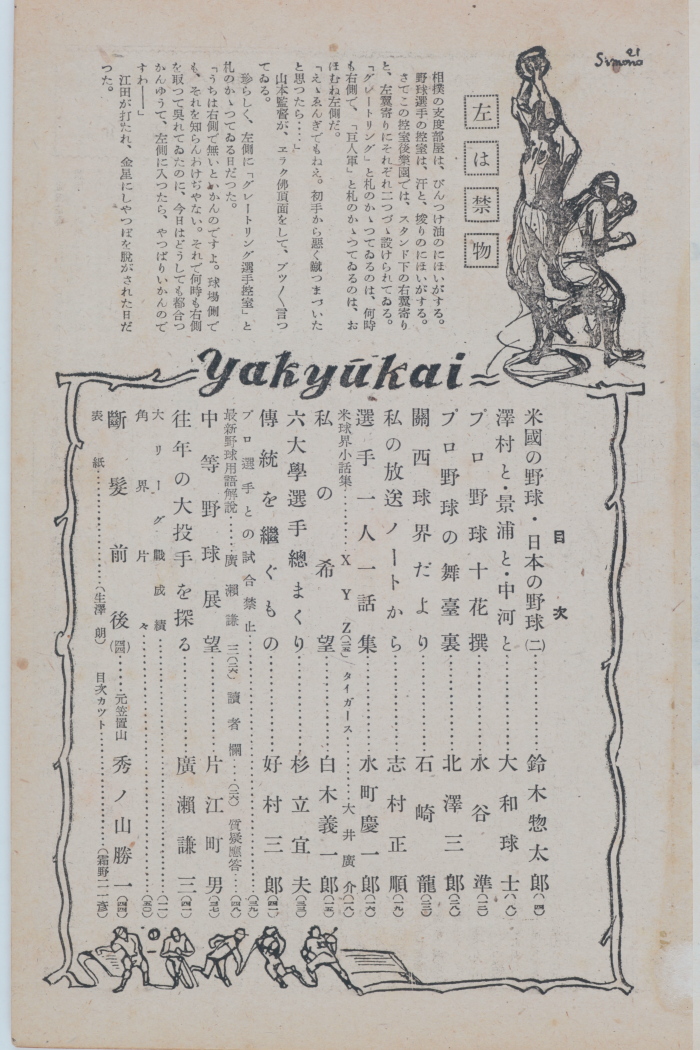 21
Simono
左は禁物
相撲の支度部屋は、びんつけ油のにほいがする。
野球選手の控室は、汗と、埃りのにほいがする。
さてこの控室後樂園では、スタンド下の右翼寄り
と、左翼寄りにそれぞれ二つづゝ設けられてゐる。
「グレートリング」と札のかゝつてゐるのは、何時
も右側で、「巨人軍」と札のかゝつてゐるのは、お
ほむね左側だ。
「えゝゑんぎでもねえ。初手から惡く蹴つまづいた
と思つたら……」
山本監督が、エラク佛頂面をして、ブツ〳〵言つ
てゐる。
珍らしく、左側に「グレートリング選手控室」と
札のかゝつてゐる日だつた。
「うちは右側で無いといかんのですよ。球場側で
も、それを知らんわけぢやない。それで何時も右側
を取つて呉れてゐたのに、今日はどうしても都合つ
かんゆうて、左側に入つたら、やつぱりいかんので
すわ——」
江田が打たれ、金星にしやつぽを脱がされた日だ
つた。
Yakyūkai
目次
米國の野球・日本の野球(二)………鈴木惣太郎(四)
澤村と・景浦と・中河と………大和球士(八)
プロ野球十花撰………水谷準(三)
プロ野球の舞臺裏………北澤三郎(六)
關西球界だより………石崎龍(三)
私の放送ノートから………志村正順(九)
選手一人一話集………水町慶一郎(六)
米球界小話集………XYZ(三五) タイガース………大井廣介(八)
私の希望………白木義一郎(五)
六大學選手總まくり………杉立宜夫(三)
傳統を繼ぐもの………好村三郎
プロ選手との試合禁止………(元)
最新野球用語解說………廣瀬謙三(六) 讀者欄…(六) 質疑應答…
中等野球展望………片江町男
往年の大投手を探る………廣瀬謙三
大リーグ戰成績………
角界片々………(五〇)
斷髮前後(四回)………元笠置山 秀ノ山勝一(四四)
表紙………(生澤朗) 目次カツト………(霜野二一彦)